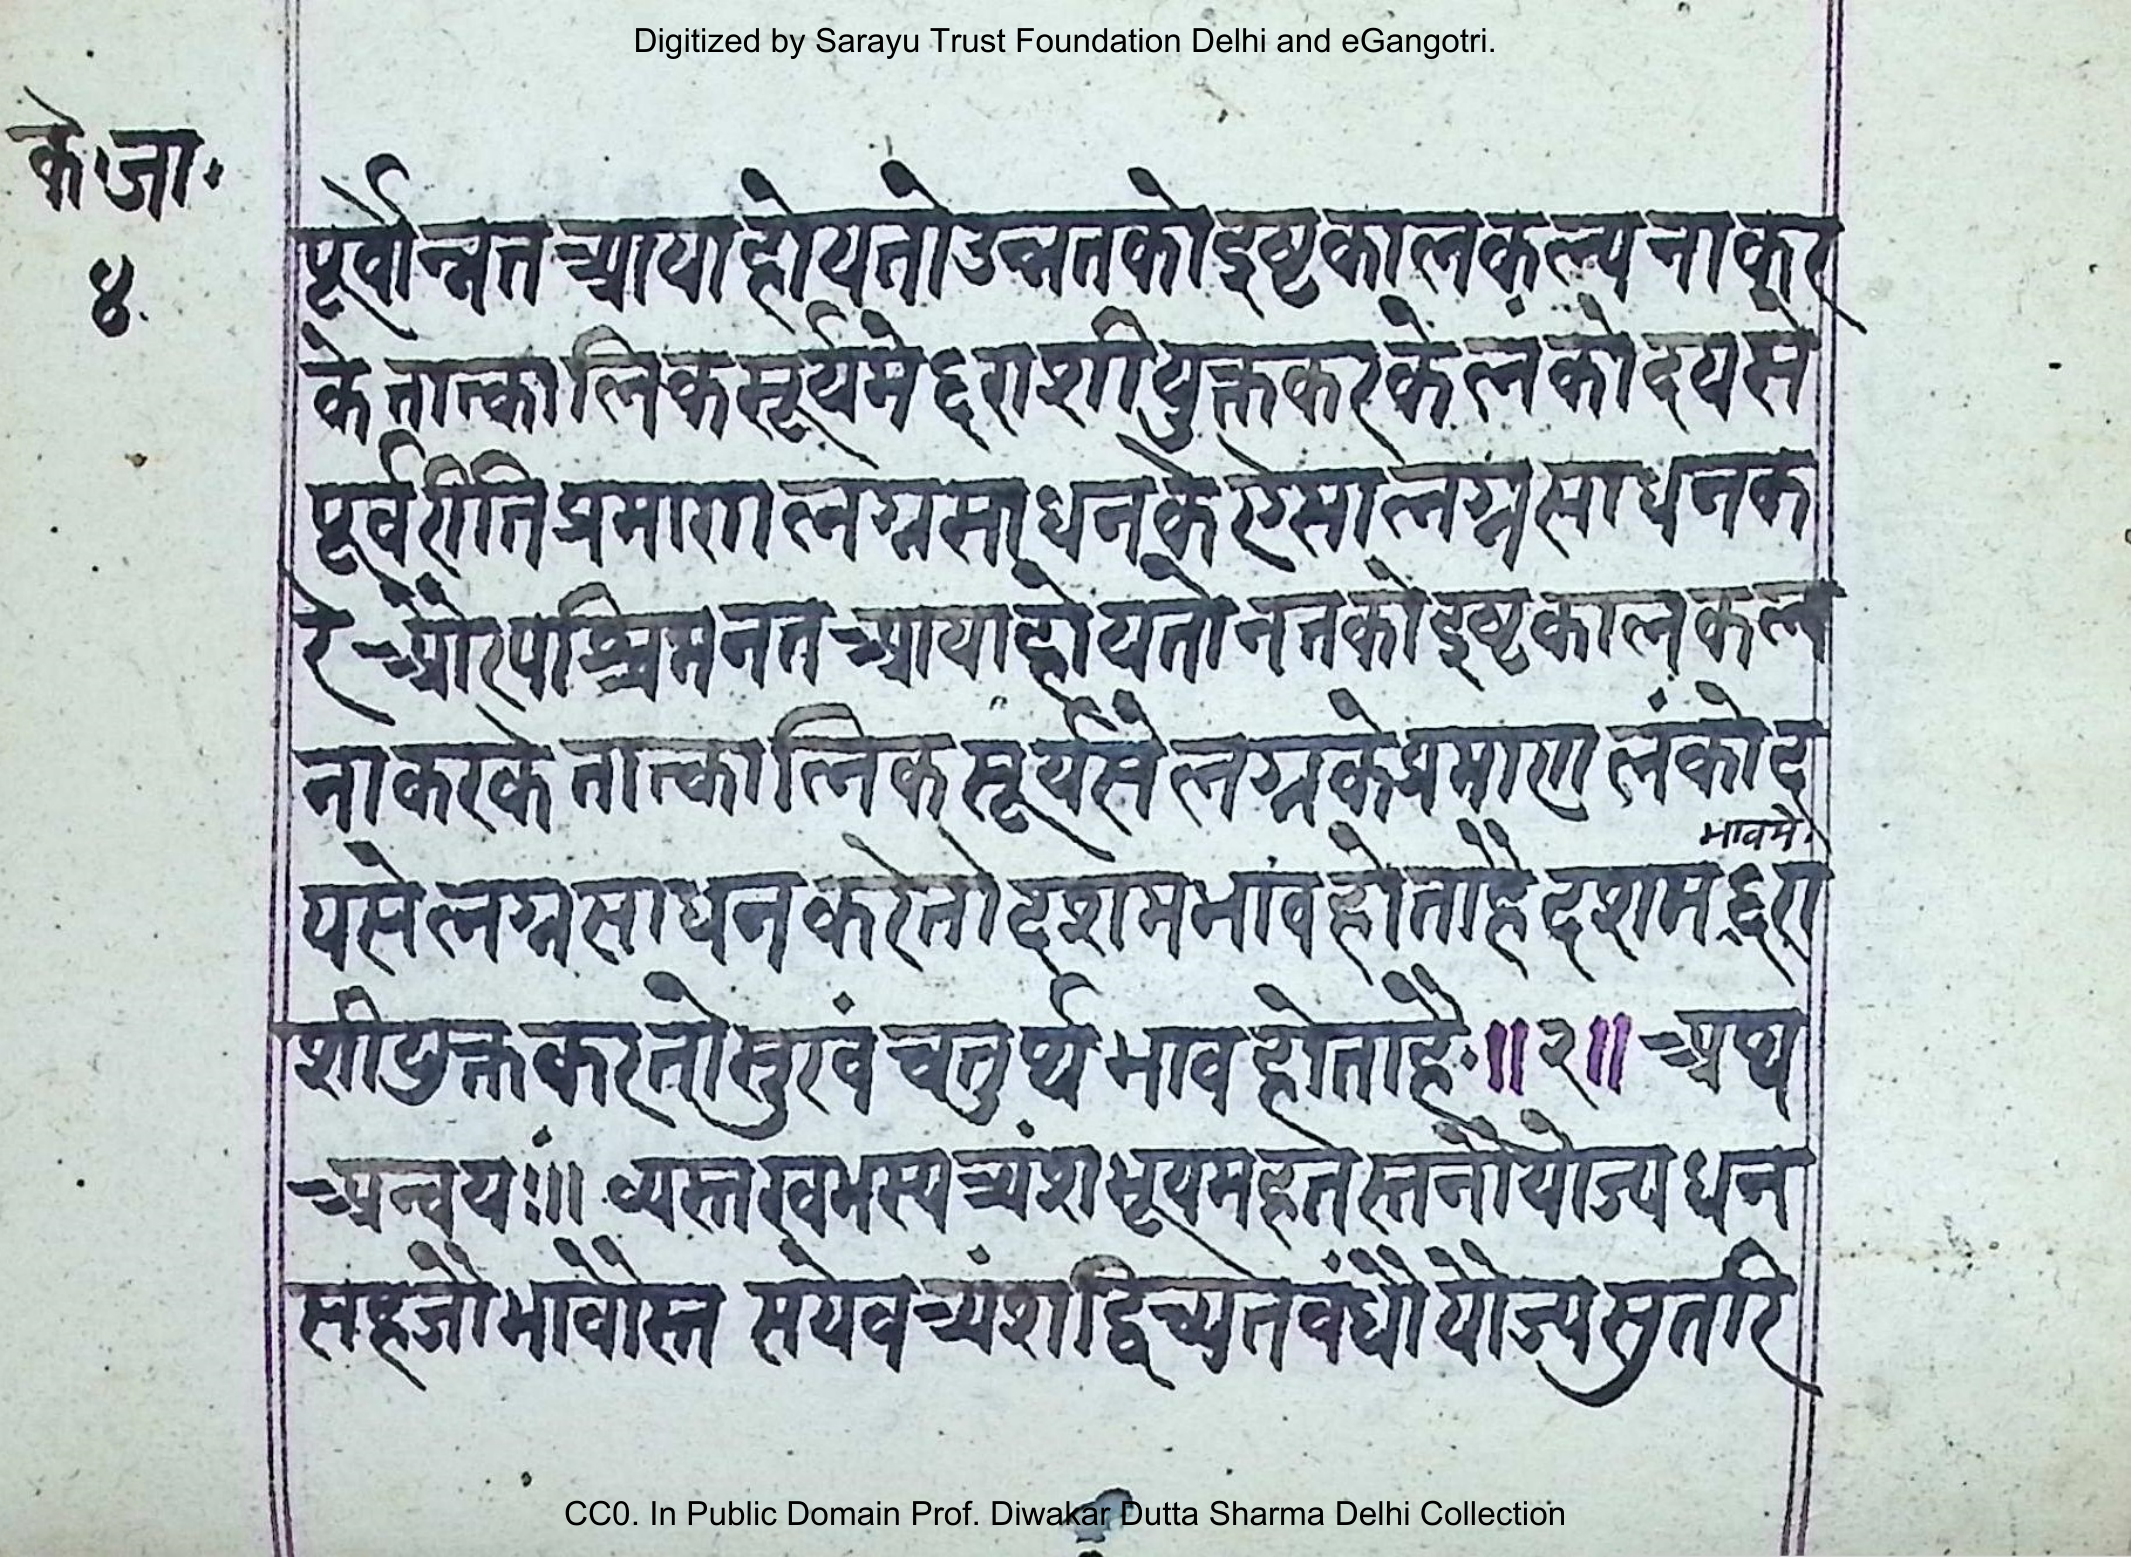 Digitized by Sarayu Trust Foundation Delhi and eGangotri.
के॰जा॰
४
पूर्वोन्नत आया होय तो उन्नत को इष्टकाल कल्पना कर
के तात्कालिक सूर्य मे ६ राशी युक्त कर के लंकोदय से
पूर्व रीति प्रमाण लग्न साधन के एसा लग्न साधन क
रे और पश्चिम नत आया होय तो नत को इष्ट काल कल्प
ना कर के तात्कालिक सूर्य से लग्न के प्रमाण लंकोद
भावमे
य से लग्न साधन करे तो दशम भाव होता है दशम ६ रा
शी युक्त कर तो सुखं चतुर्थ भाव होता है ॥२॥ अथ
अन्वयः॥ व्यस्त खभस्य त्र्यंश भूयमहत स्तनौ योज्य धन
सहजौ भावौ स्त सयेव त्र्यंश द्वि च्युत बंधौ योज्य सुतरि
CC0. In Public Domain Prof. Diwakar Dutta Sharma Delhi Collection